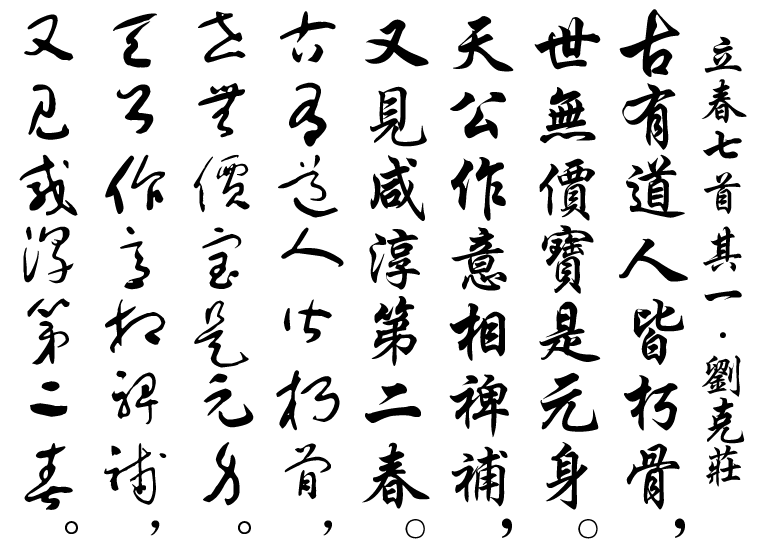 立春七首其一・劉克莊
古有道人皆朽骨，
世無價寶是元身。
天公作意相裨補，
又見咸淳第二春。
古有道人皆朽骨，
世無價寶是元身。
天公作意相裨補，
又見咸淳第二春。